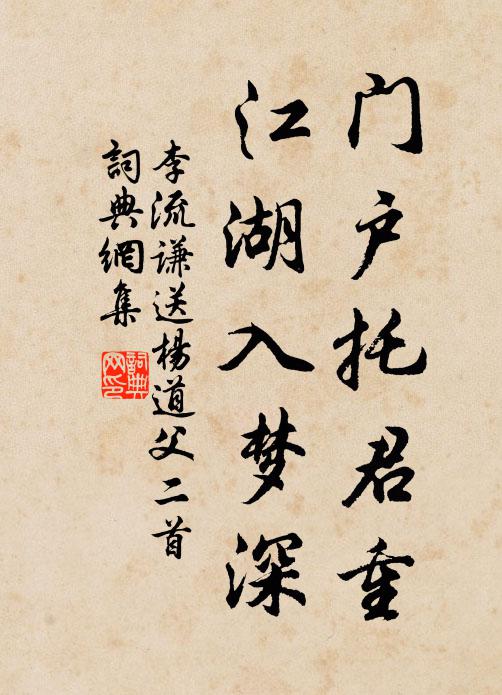 门户托君重
江湖入梦深
李流谦送杨道父二首
詞典網集
詞典
网印